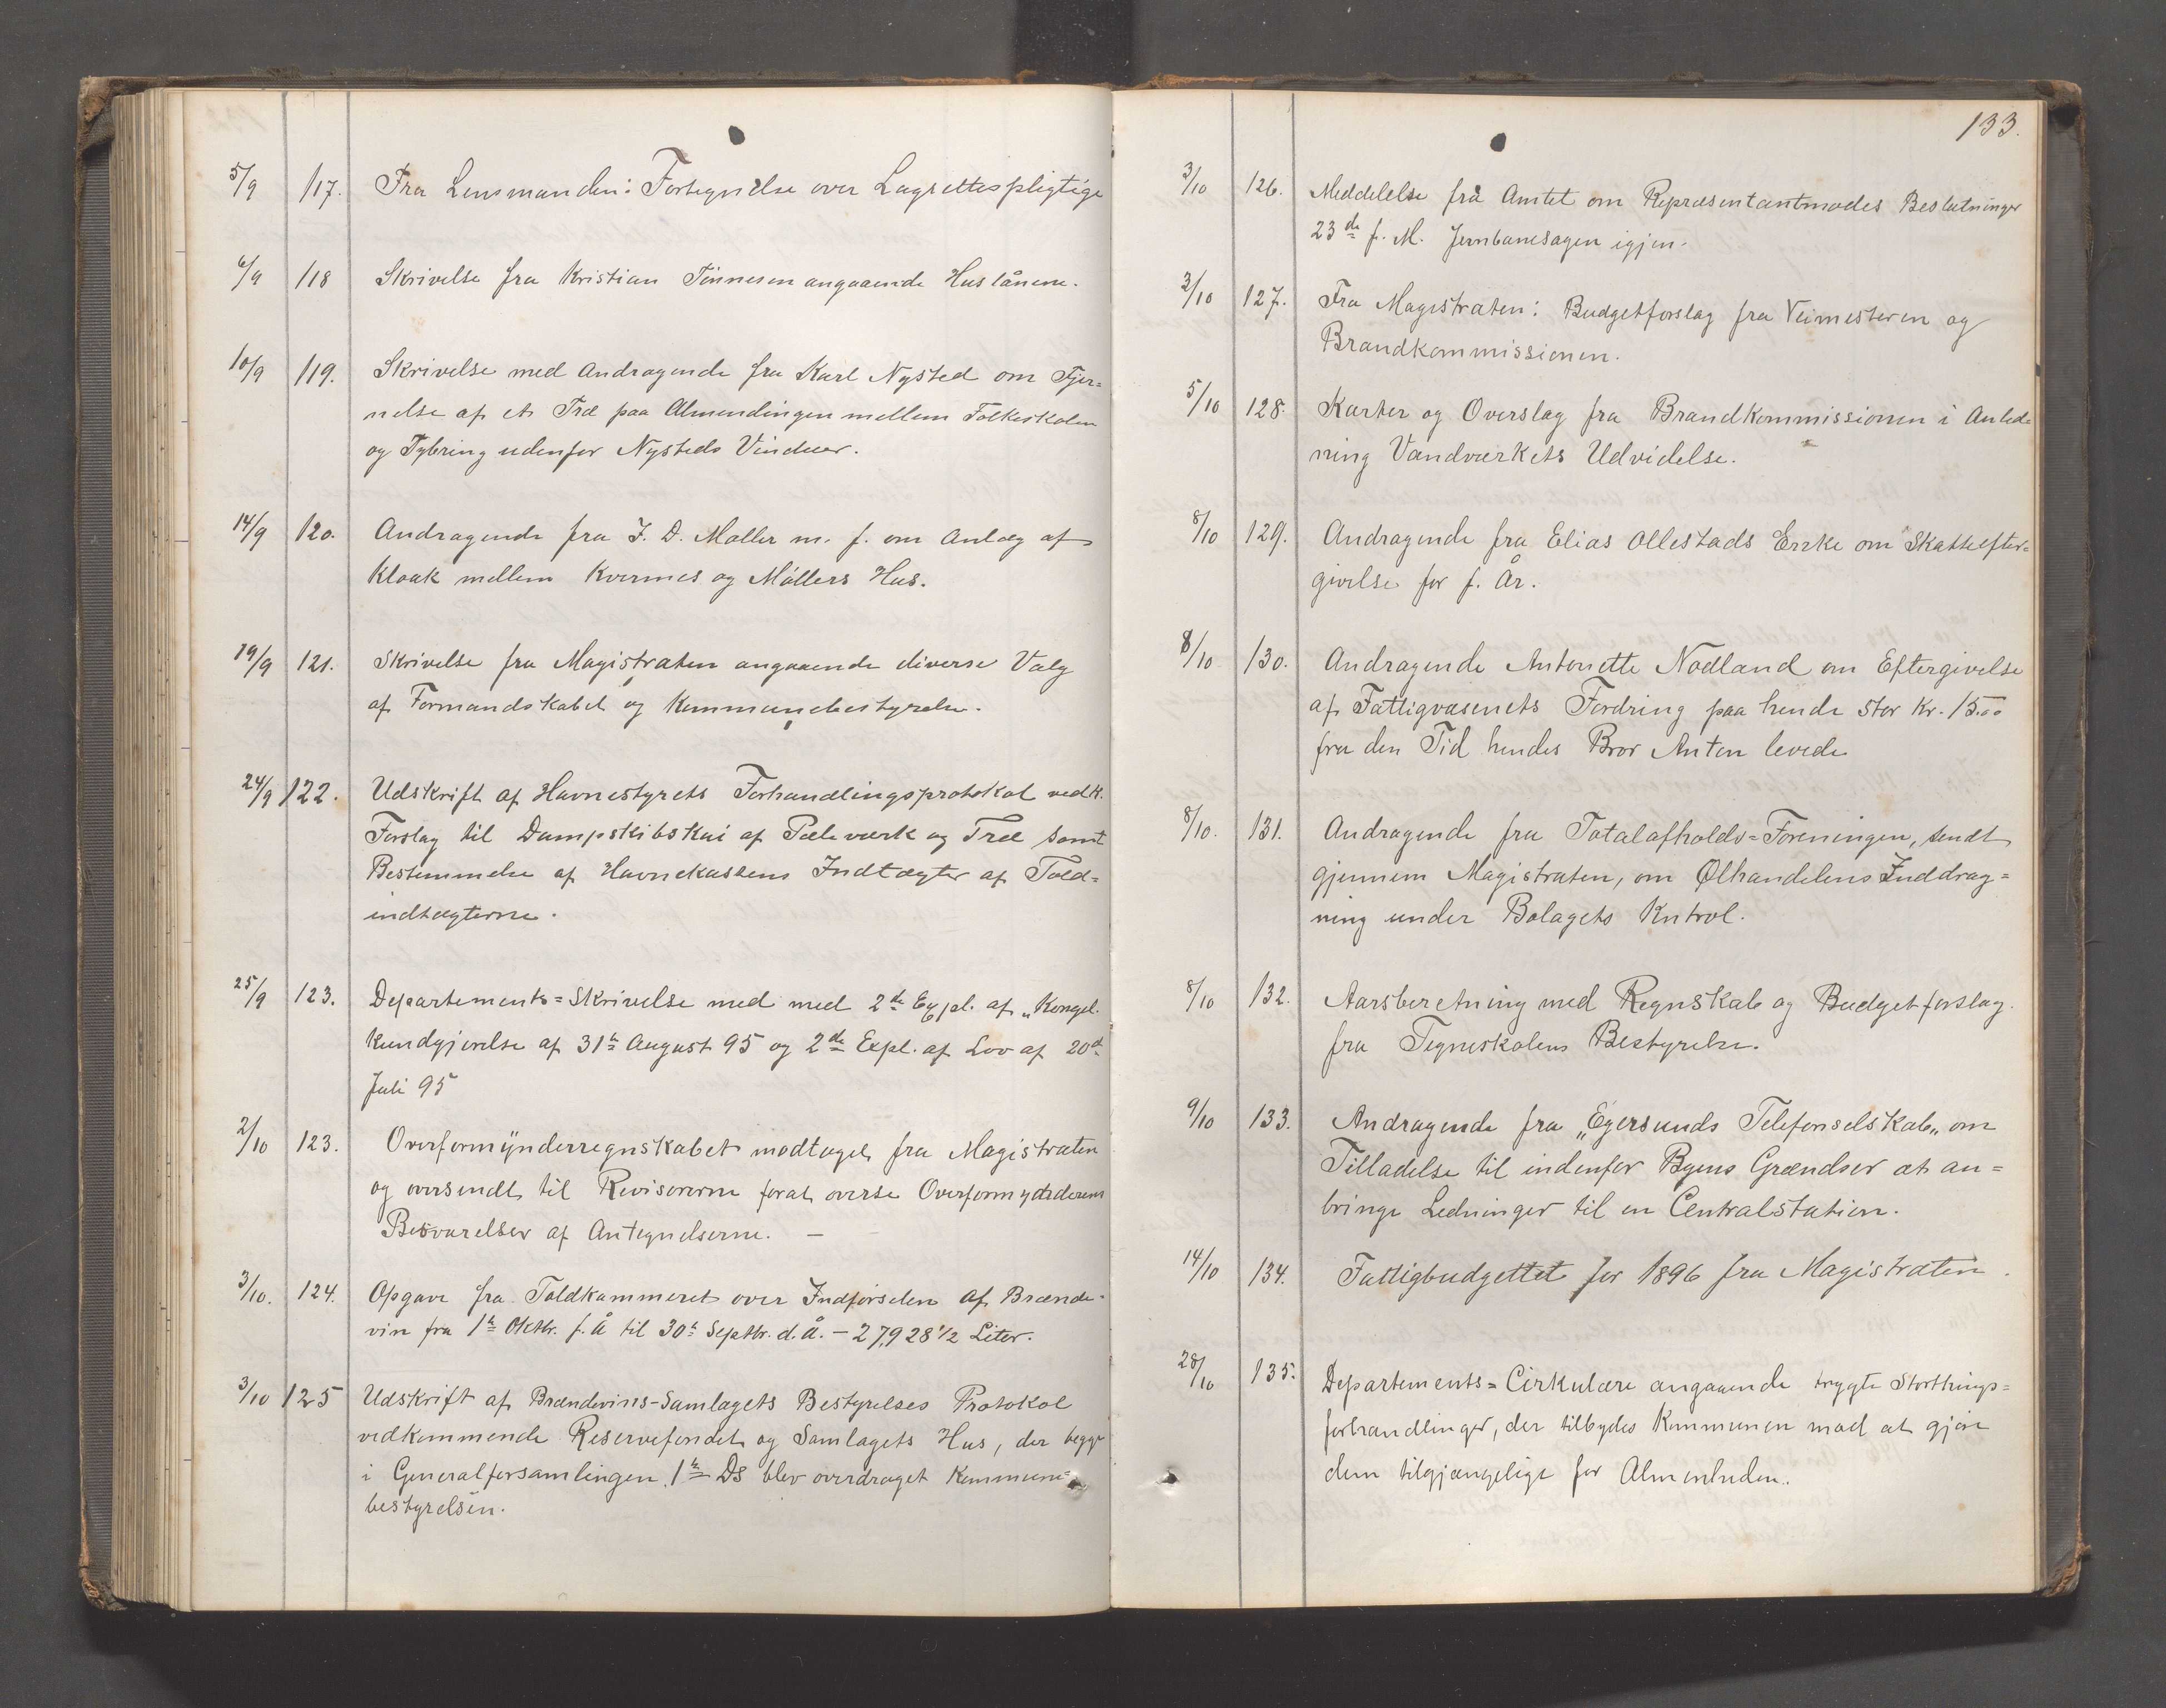 5/9 117. Fra Lensmanden: Fortegnelse over Lagrettespligtige
6/9 118 Skrivelse fra Kristian Tønnesen angaaende Huslånene.
10/9 119. Skrivelse med Andragende fra Karl Nysted om Fjer=
nelse af et Træ paa Almendingen mellem Folkeskolen
og Tybring udenfor Nysteds Vinduer.
14/9 120. Andragende fra J. D. Møller m. f. om Anlæg af
Kloak mellem Kvernes og Møllers Hus.
19/9 121. Skrivelse fra Magistraten angaaende diverse Valg
af Formandskabet og Kommunebestyrelse.
24/9 122. Udskrift af Havnestyrets Forhandlingsprotokol vedk.
Forslag til Dampskibskai af Pæleværk og Træ samt
Bestemmelse af Havnekassens Indtægter af Told=
indtægterne.
25/9 123. Departements=Skrivelse med med 2de Expl. af „Kongel.
Kundgjørelse af 31te August 95 og 2de Expl. af Lov af 20de
Juli 95
2/10 123. Overformynderregnskabet modtaget fra Magistraten
og oversendt til Revisorerne forat overse Overformynderens
Besvarelser af Antegnelserne. —
3/10. 124. Opgave fra Toldkammeret over Indførselen af Brænde-
vin fra 1te Oktbr. f. Å til 30te Septbr. d. Å. – 27,928 1/2 Liter.
3/10 125 Udskrift af Brændevins-Samlagets Bestyrelses Protokol
vedkommende Reservefondet og Samlagets Hus, der begge
i Generalforsamlingen 1te Ds blev overdraget Kommune=
bestyrelsen.
133.
3/10 126. Meddelelse fra Amtet om Repræsentantmødes Beslutninger
23de f. M. Jernbanesagen igjen.
3/10 127. Fra Magistraten: Budgetforslag fra Veimesteren og
Brandkommissionen.
5/10 128. Karter og Overslag fra Brandkommissionen i Anled=
ning Vandværkets Udvidelse.
8/10 129. Andragende fra Elias Ollestads Enke om Skatteefter=
givelse for f. År.
8/10 130. Andragende Antonette Nodland om Eftergivelse
af Fattigvæsenets Fordring paa hende stor Kr. 15.00
fra den Tid hendes Bror Anton levede
8/10. 131. Andragende fra Totalafholds=Foreningen, sendt
gjennem Magistraten, om Ølhandelens Inddrag=
ning under Bolagets Kntrol.
8/10 132. Aarsberetning med Regnskab og Budgetforslag.
fra Tegneskolens Bestyrelse.
9/10 133. Andragende fra „Egersunds Telefonselskab„ om
Tilladelse til indenfor Byens Grændser at an=
bringe Ledninger til en Centralstation.
14/10 134. Fattigbudgettet for 1896 fra Magistraten.
28/10 135. Departements=Cirkulære angaaende trygte Storthings=
forhandlinger, der tilbydes Kommunen mod at gjøre
dem tilgjængelige for Almenheden.